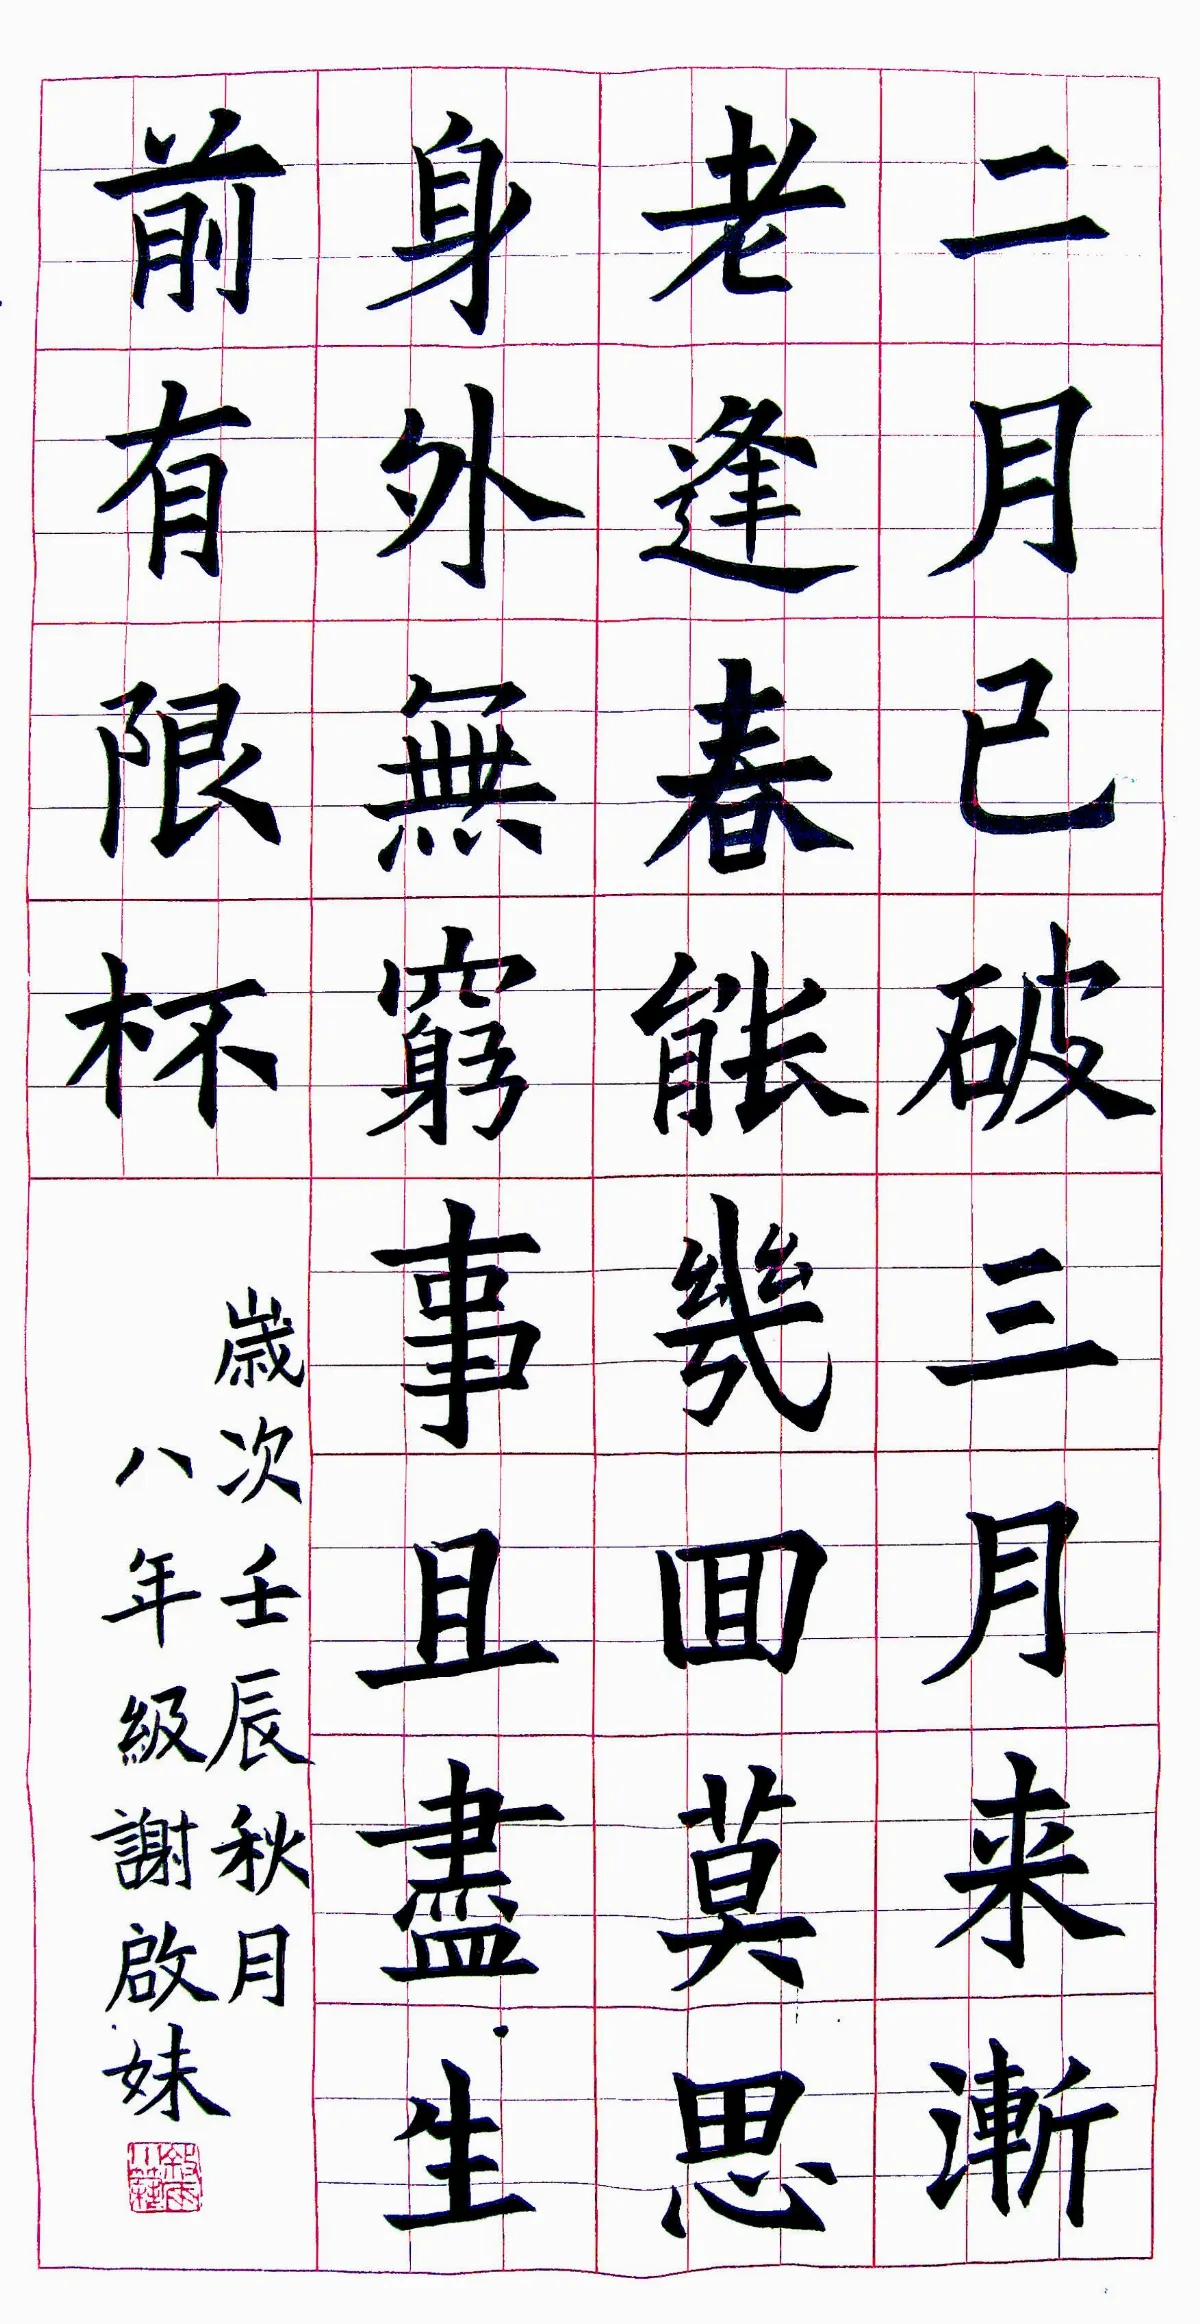 二月已破三月来漸
老逢春能幾回莫思
身外無窮事且盡生
前有限杯
歳次壬辰秋月
八年級謝啟妹